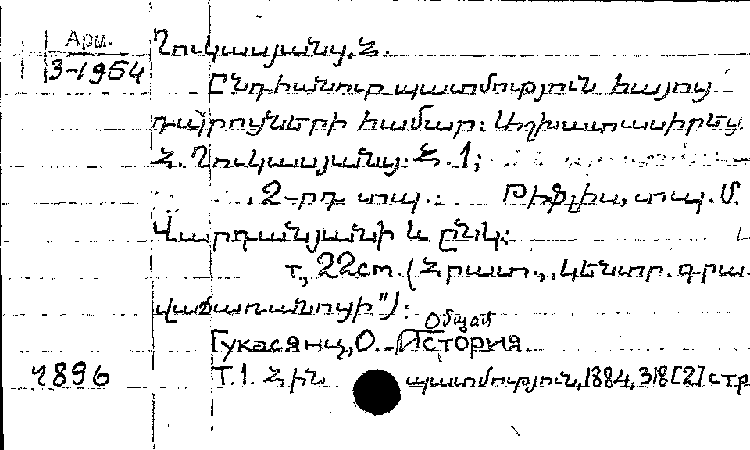 Арм.
3-1954
Ղուկասյանց, Հ.
Ընդհանուր պատմություն հայոց
դպրոցների համար: Աշխատասիրեց
Հ. Ղուկասյանց. Հ. 1;
2-րդ տպ. Թիֆլիս, տպ. Մ.
Վարդանյանի և ընկ;
т, 22см. (Հրատ., կենտր. գրա
վաճառանոցի"):
Общая
Гукасянц, О. История
1896 Т.1. Հին պատմություն, 1884, 318 [2] стр